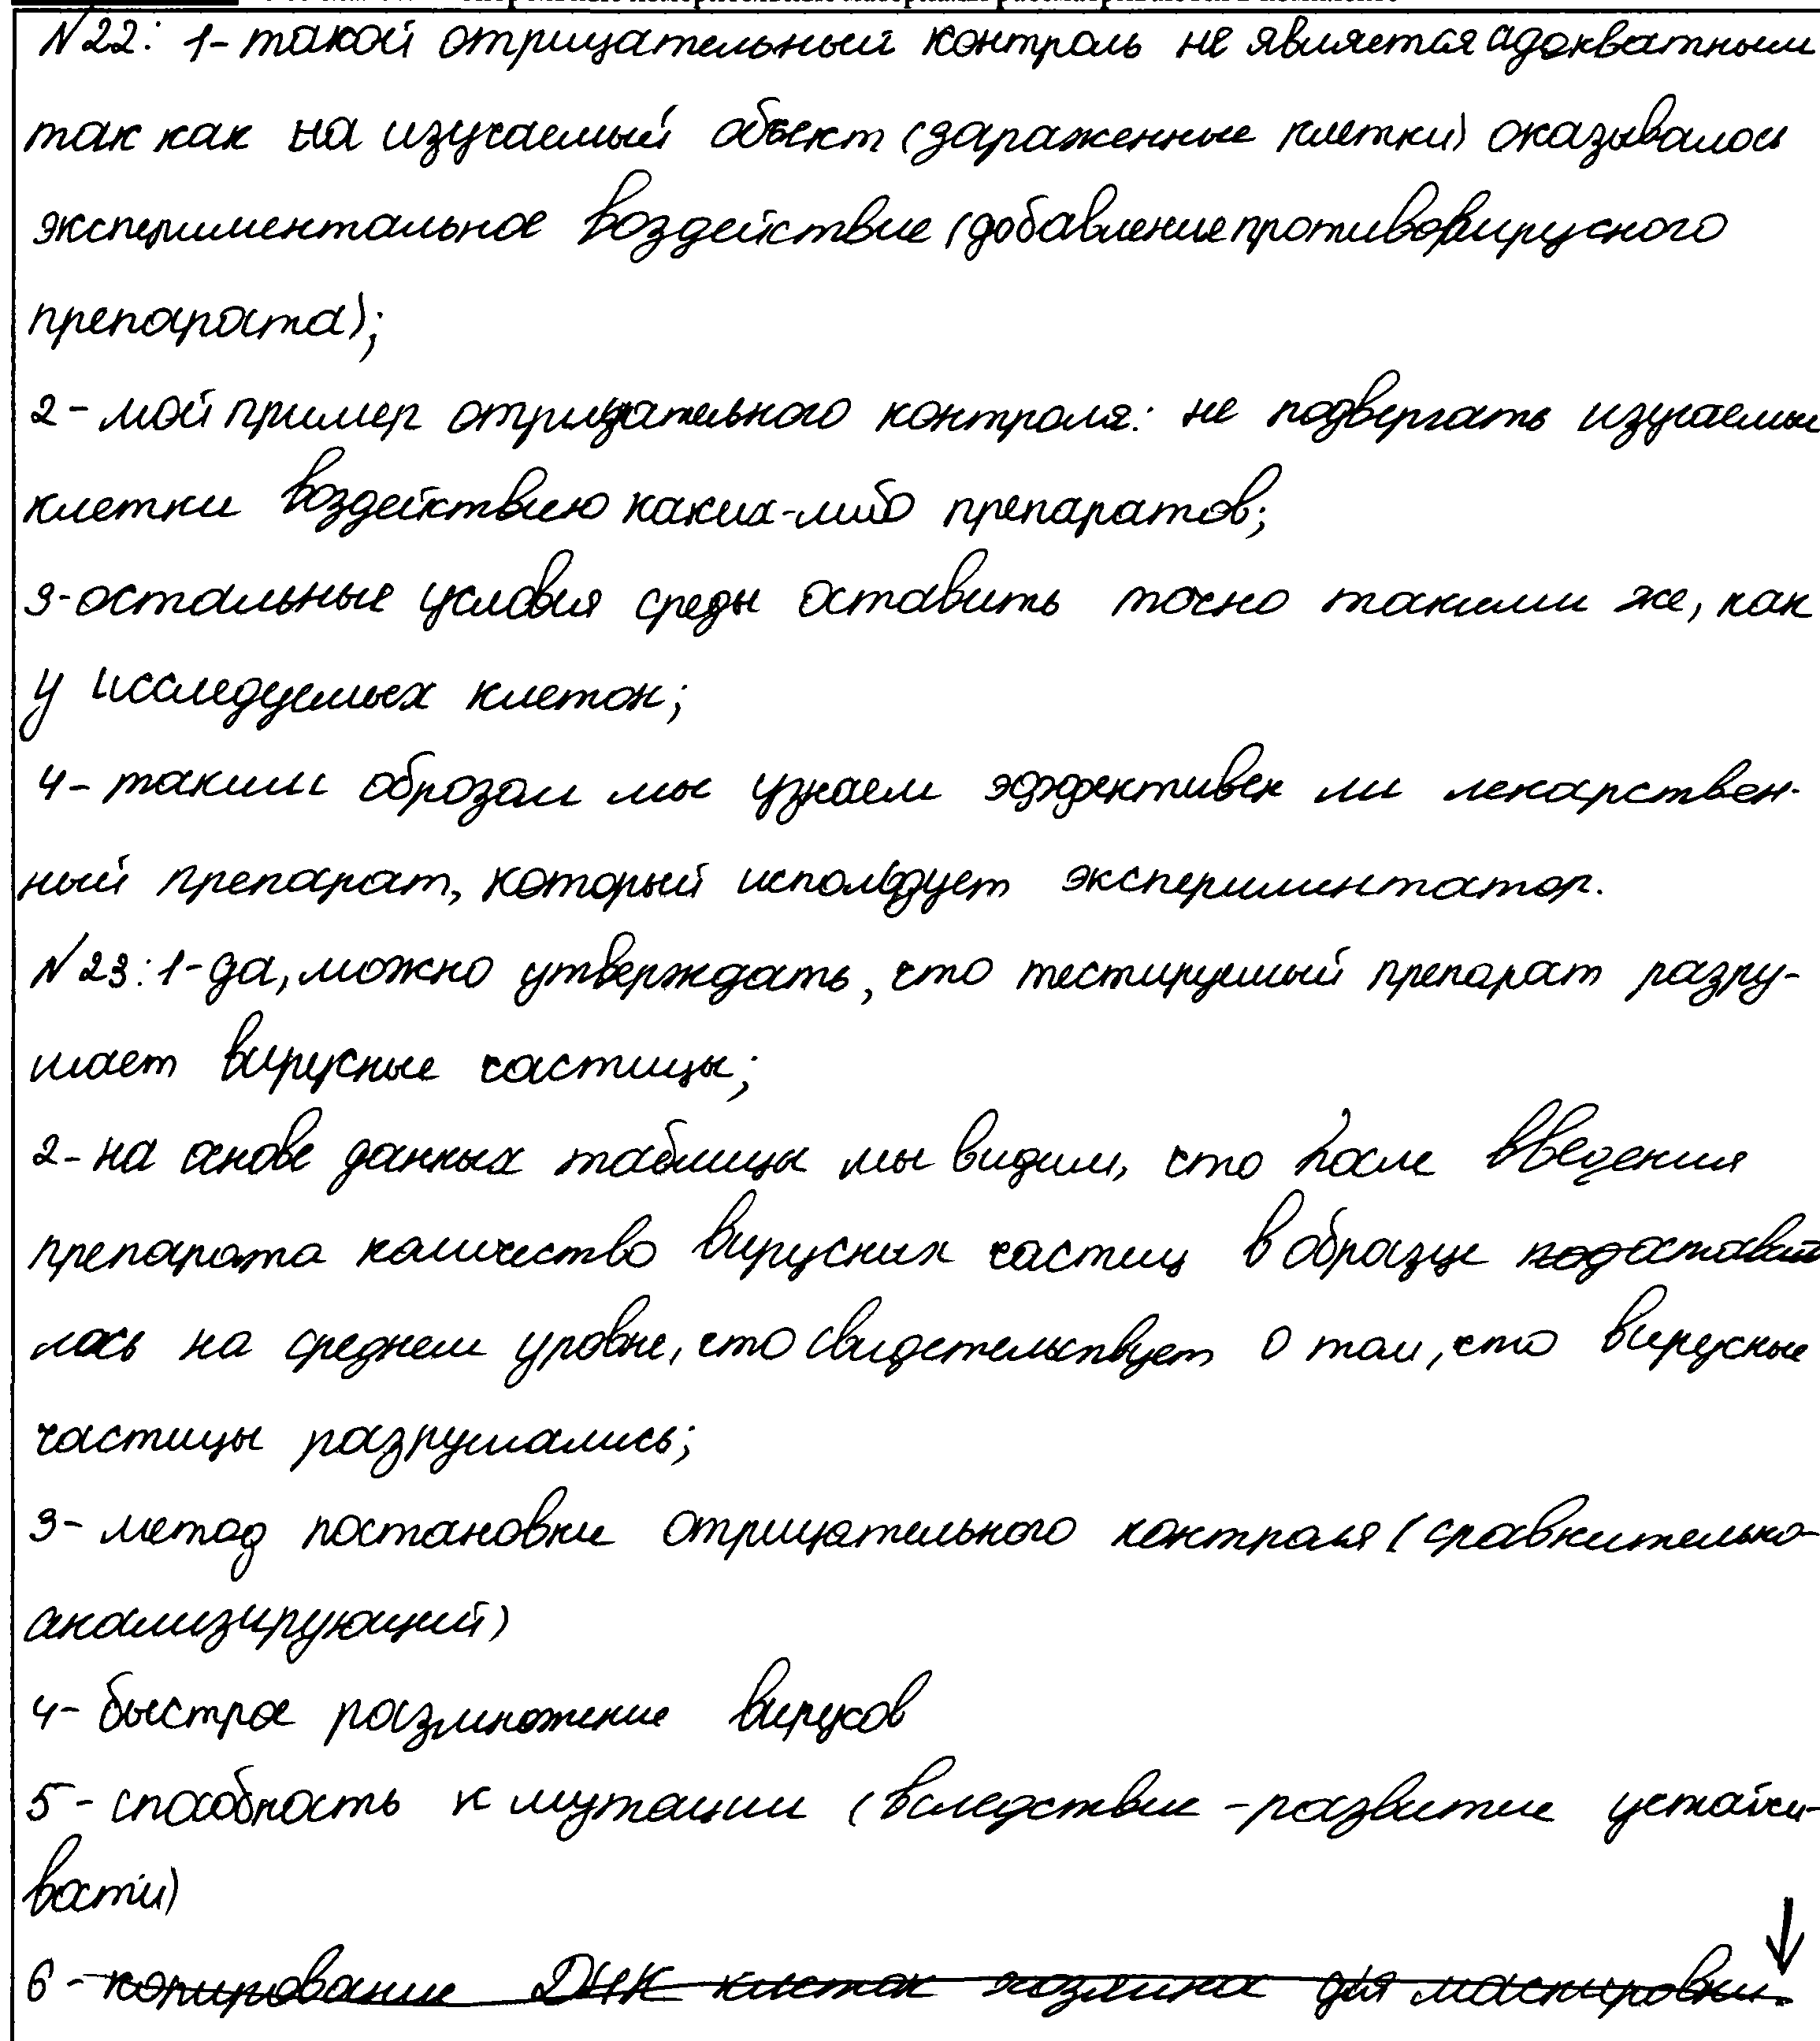 N22: 1- такой отрицательный контроль не является адекватным
так как на изучаемый объект (зараженные клетки) оказывалось
экспериментальное воздействие (добавление противовирусного
препарата);
2- мой пример отрицательного контроля: не подвергать изучаемые
клетки воздействию каких-либо препаратов;
3- остальные условия среды оставить точно такими же, как
у исследуемых клеток;
4- таким образом мы узнаем эффективен ли лекарствен-
ный препарат, который использует экспериментатор.
N23: 1- да, можно утверждать, что тестируемый препарат разру-
шает вирусные частицы;
2- на основе данных таблицы мы видим, что после введения
препарата количество вирусных частиц в образце
лось на среднем уровне, что свидетельствует о том, что вирусные
частицы разрушались;
3- метод постановки отрицательного контроля (сравнительно-
анализирующий)
4- быстрое размножение вирусов
5- способность к мутации (вследствие - развитие устойчи-
вости)
6- копирование ДНК клеток хозяина для маскировки.